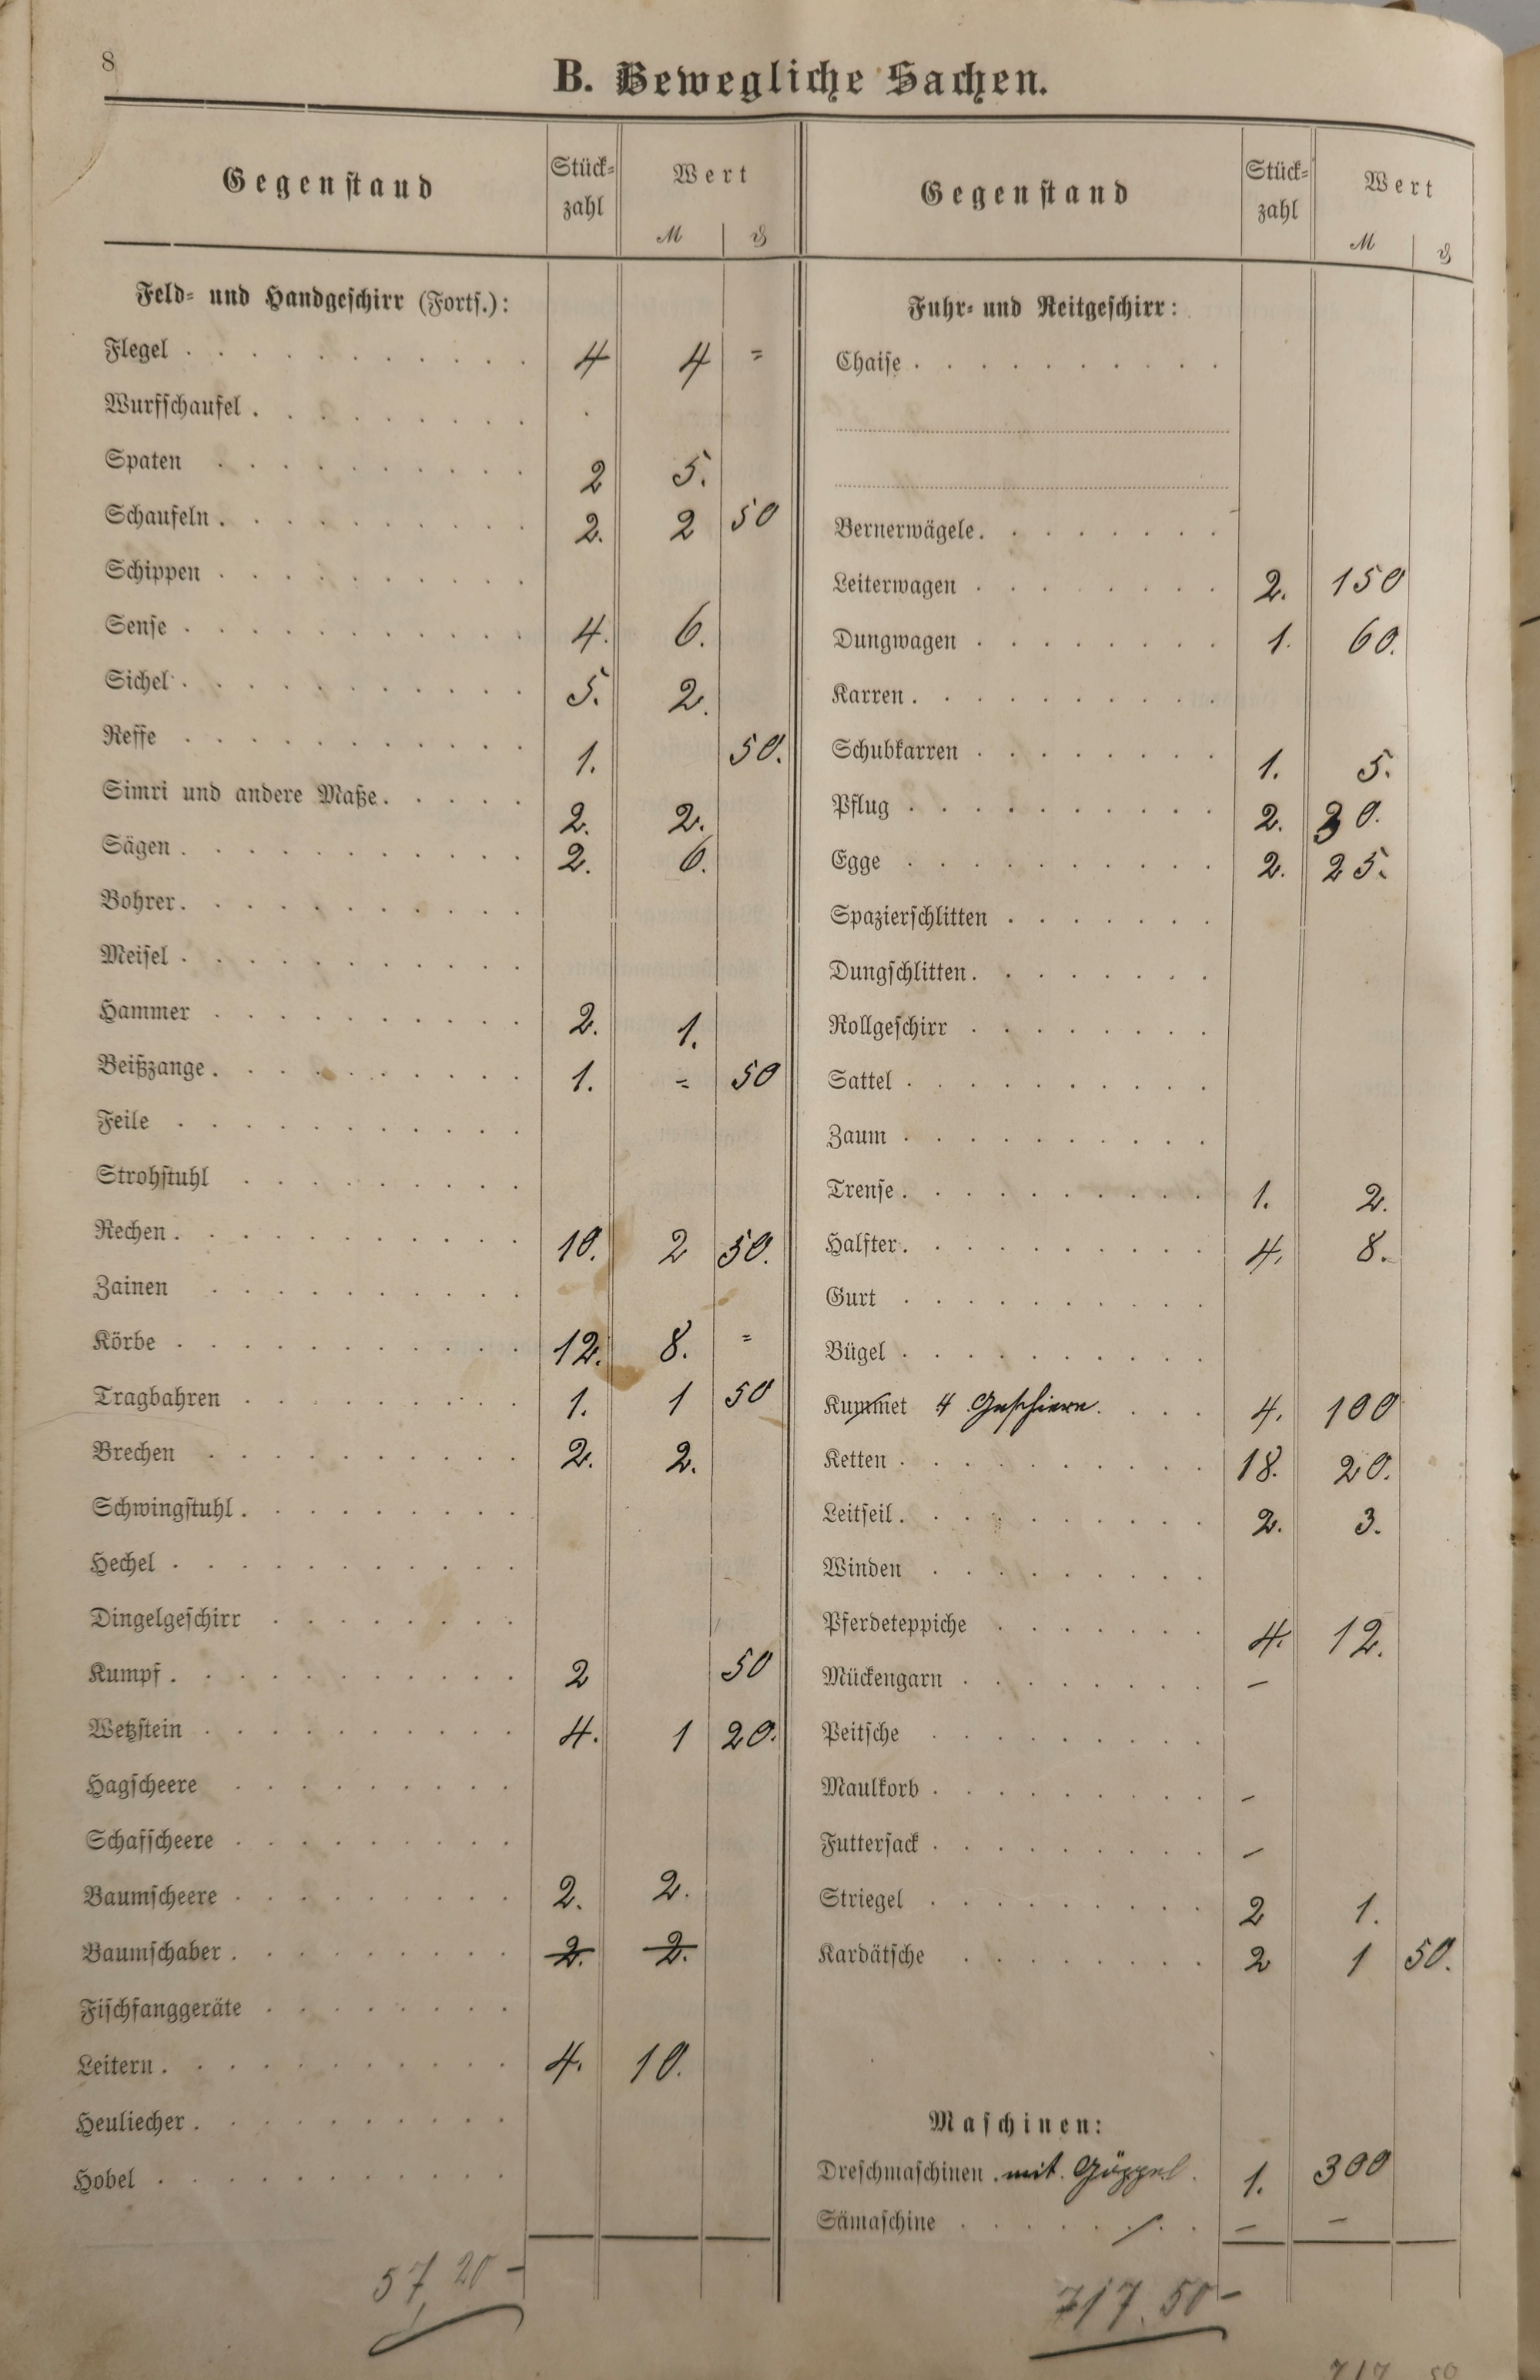 8
B. Bewegliche Sachen.
Gegenstand Stück- zahl Wert M ₰
Feld- und Handgeschirr (Forts.):
Flegel 4 4 =
Wurfschaufel .
Spaten 2 5.
Schaufeln 2. 2 50
Schippen
Sense 4. 6.
Sichel 5. 2.
Reffe 1. 50.
Simri und andere Maße 2. 2.
Sägen 2. 6.
Bohrer
Meisel
Hammer 2. 1.
Beißzange 1. = 50
Feile
Strohstuhl
Rechen 10. 2 50.
Zainen
Körbe 12. 8. =
Tragbahren 1. 1 50
Brechen 2. 2.
Schwingstuhl
Hechel
Dingelgeschirr
Kumpf 2 50
Wetzstein 4. 1 20.
Hagscheere
Schafscheere
Baumscheere 2. 2.
Baumschaber 2. 2.
Fischfanggeräte
Leitern 4. 10.
Heuliecher
Hobel
57,20 -
Gegenstand Stück- zahl Wert M ₰
Fuhr- und Reitgeschirr:
Chaise
Bernerwägele
Leiterwagen 2. 150
Dungwagen 1. 60.
Karren
Schubkarren 1. 5.
Pflug 2. 30.
Egge 2. 25.
Spazierschlitten
Dungschlitten
Rollgeschirr
Sattel
Zaum
Trense 1. 2.
Halfter 4. 8.
Gurt
Bügel
Kummet 4 Geschirre. 4. 100
Ketten 18. 20.
Leitseil 2. 3.
Winden
Pferdeteppiche 4. 12.
Mückengarn –
Peitsche
Maulkorb –
Futtersack –
Striegel 2 1.
Kardätsche 2 1 50.
Maschinen:
Dreschmaschinen mit Göppel 1. 300
Sämaschine – –
717.50 -
717 50